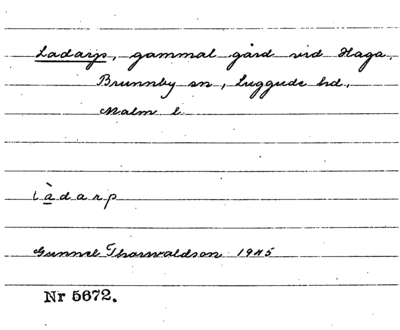 Ladarp, gammal gård vid Haga,
Brunnby sn, Luggude hd,
Malm l.
làdarp
Gunnel Thorwaldson 1945
Nr 5672.